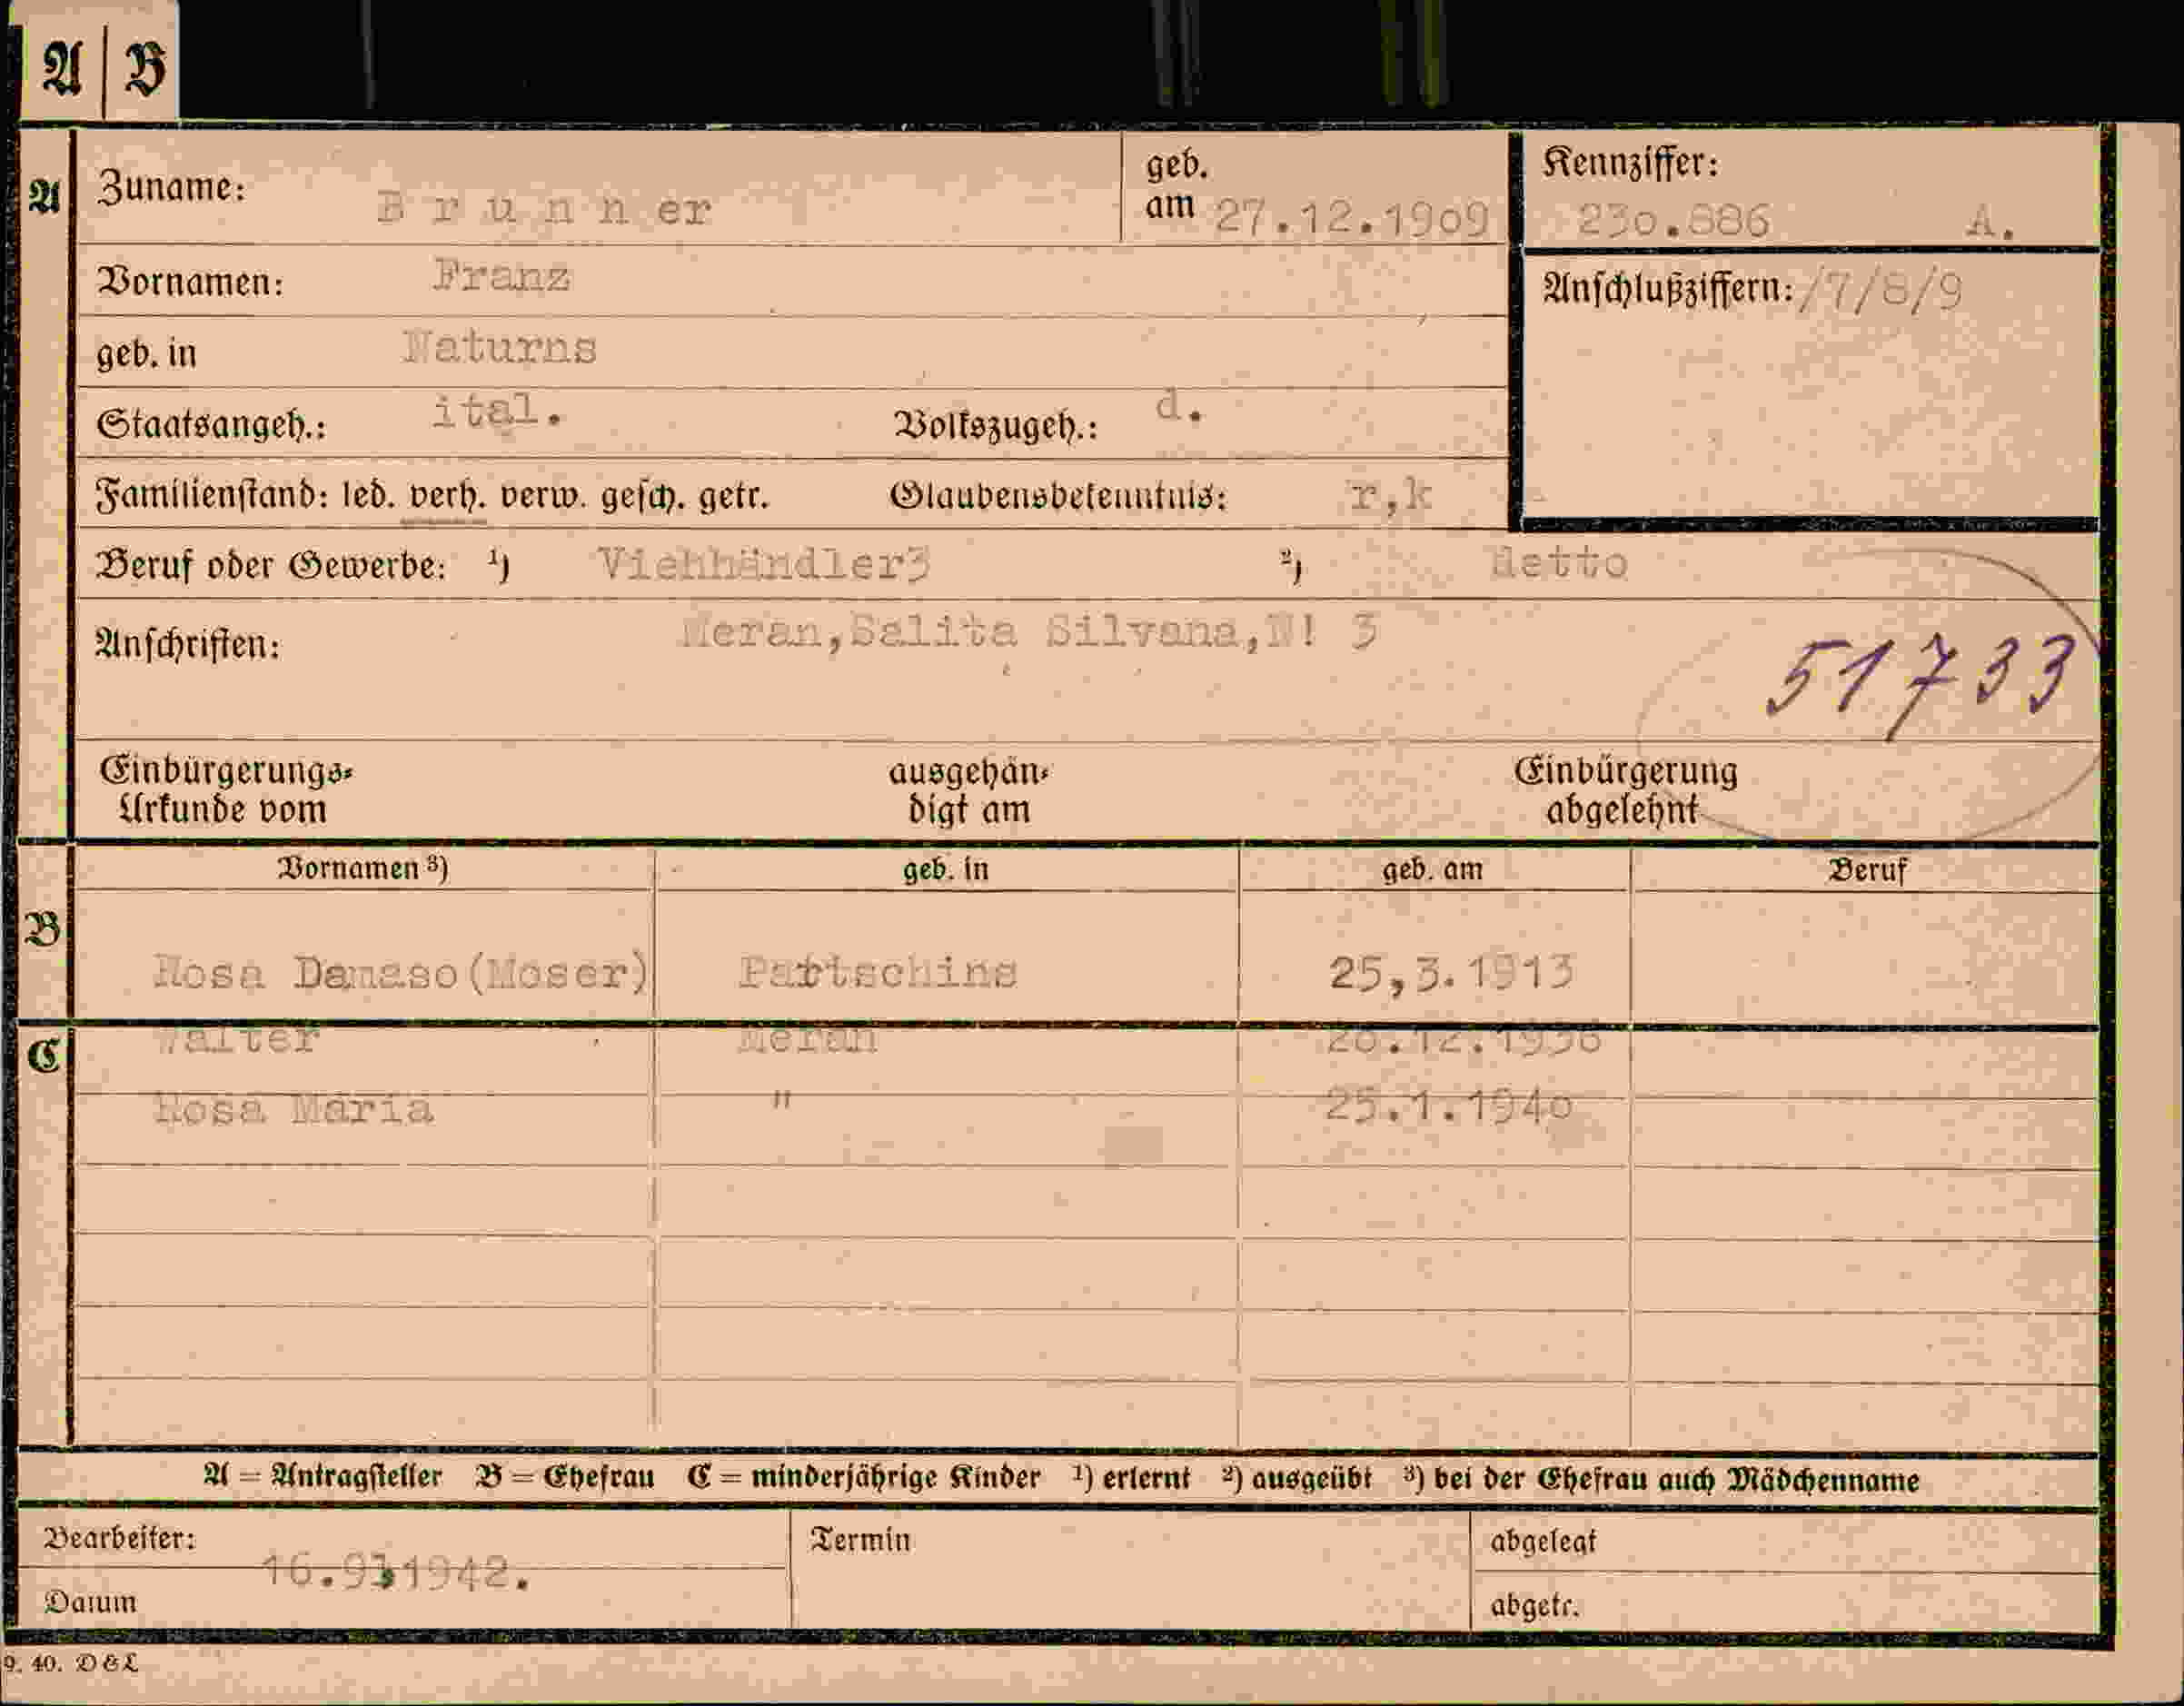 A | B
A Zuname: Brunner geb. am 27.12.1909 Kennziffer: 230.886 A.
Vornamen: Franz Anschlußziffern: /7/8/9
geb. in Naturns
Staatsangeh.: ital. Volkszugeh.: d.
Familienstand: led. verh. verw. gesch. getr. Glaubensbekenntnis: r,k
Beruf oder Gewerbe: ¹) Viehhändler3 ²) Netto
Anschriften: Meran,Salita Silvana,N! 3
51733
Einbürgerungs-Urkunde vom ausgehändigt am Einbürgerung abgelehnt
Vornamen ³) geb. in geb. am Beruf
B Rosa Damaso(Moser) Partschins 25,3.1913
C Walter Meran 26.12.1938
Rosa Maria " 25.1.1940
A = Antragsteller B = Ehefrau C = minderjährige Kinder ¹) erlernt ²) ausgeübt ³) bei der Ehefrau auch Mädchenname
Bearbeiter: Termin abgelegt
16.9.1942.
Datum abgetr.
9. 40. D & L